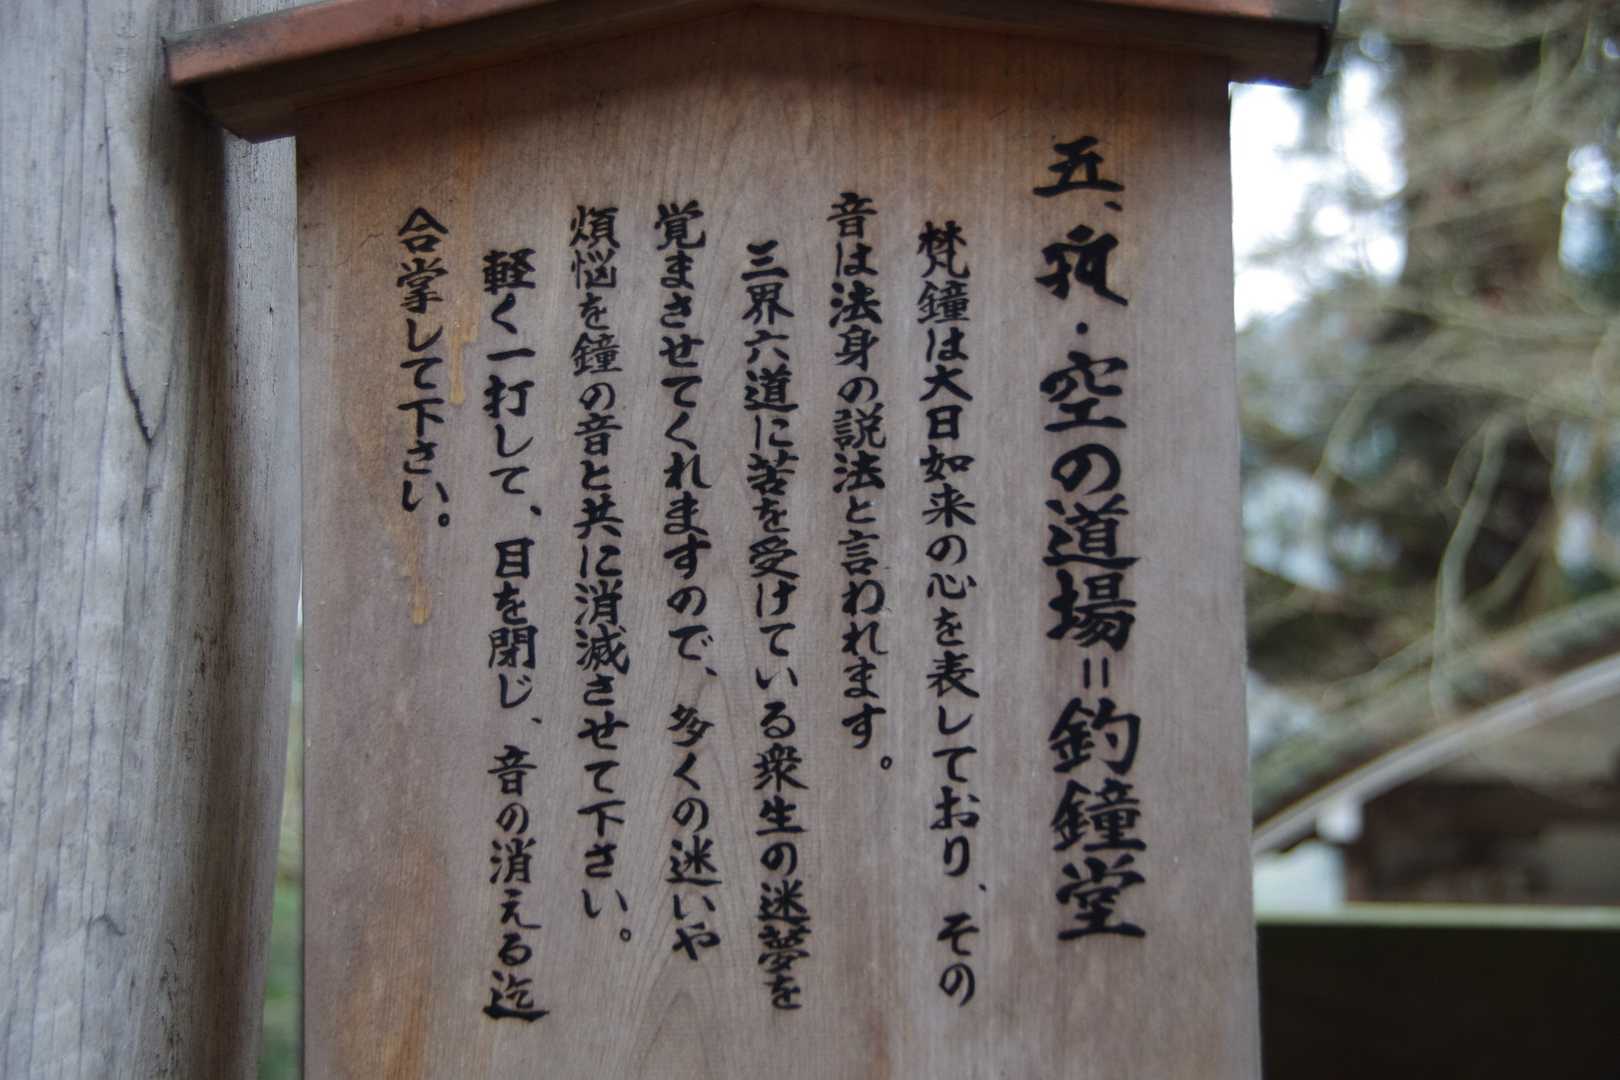 五、・空の道場=釣鐘堂
梵鐘は大日如来の心を表しており、その
音は法身の説法と言われます。
三界六道に苦を受けている衆生の迷夢を
覚まさせてくれますので、多くの迷いや
煩悩を鐘の音と共に消滅させて下さい。
軽く一打して、目を閉じ、音の消える迄
合掌して下さい。